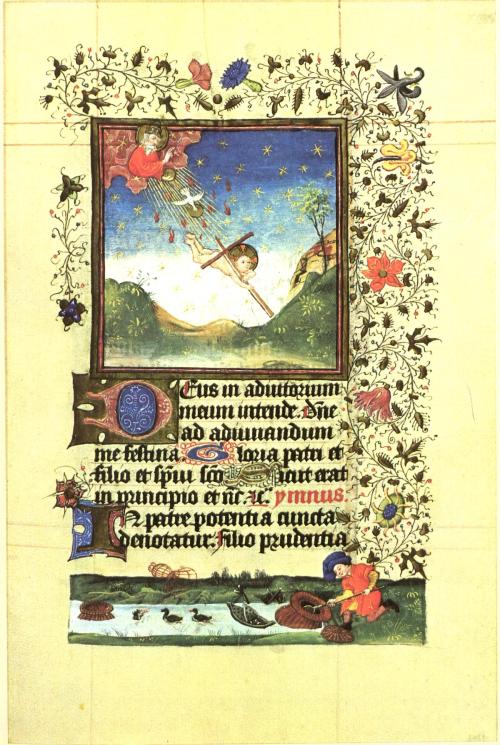 Deus in adiutorium
meum intende. Dñe
ad adiuuandum
me festina. Gloria patri et
filio et spũi sco Sicut erat
in principio et ñc ⁊c. ymnus.
In patre potentia cuncta
denotatur. filio prudentia